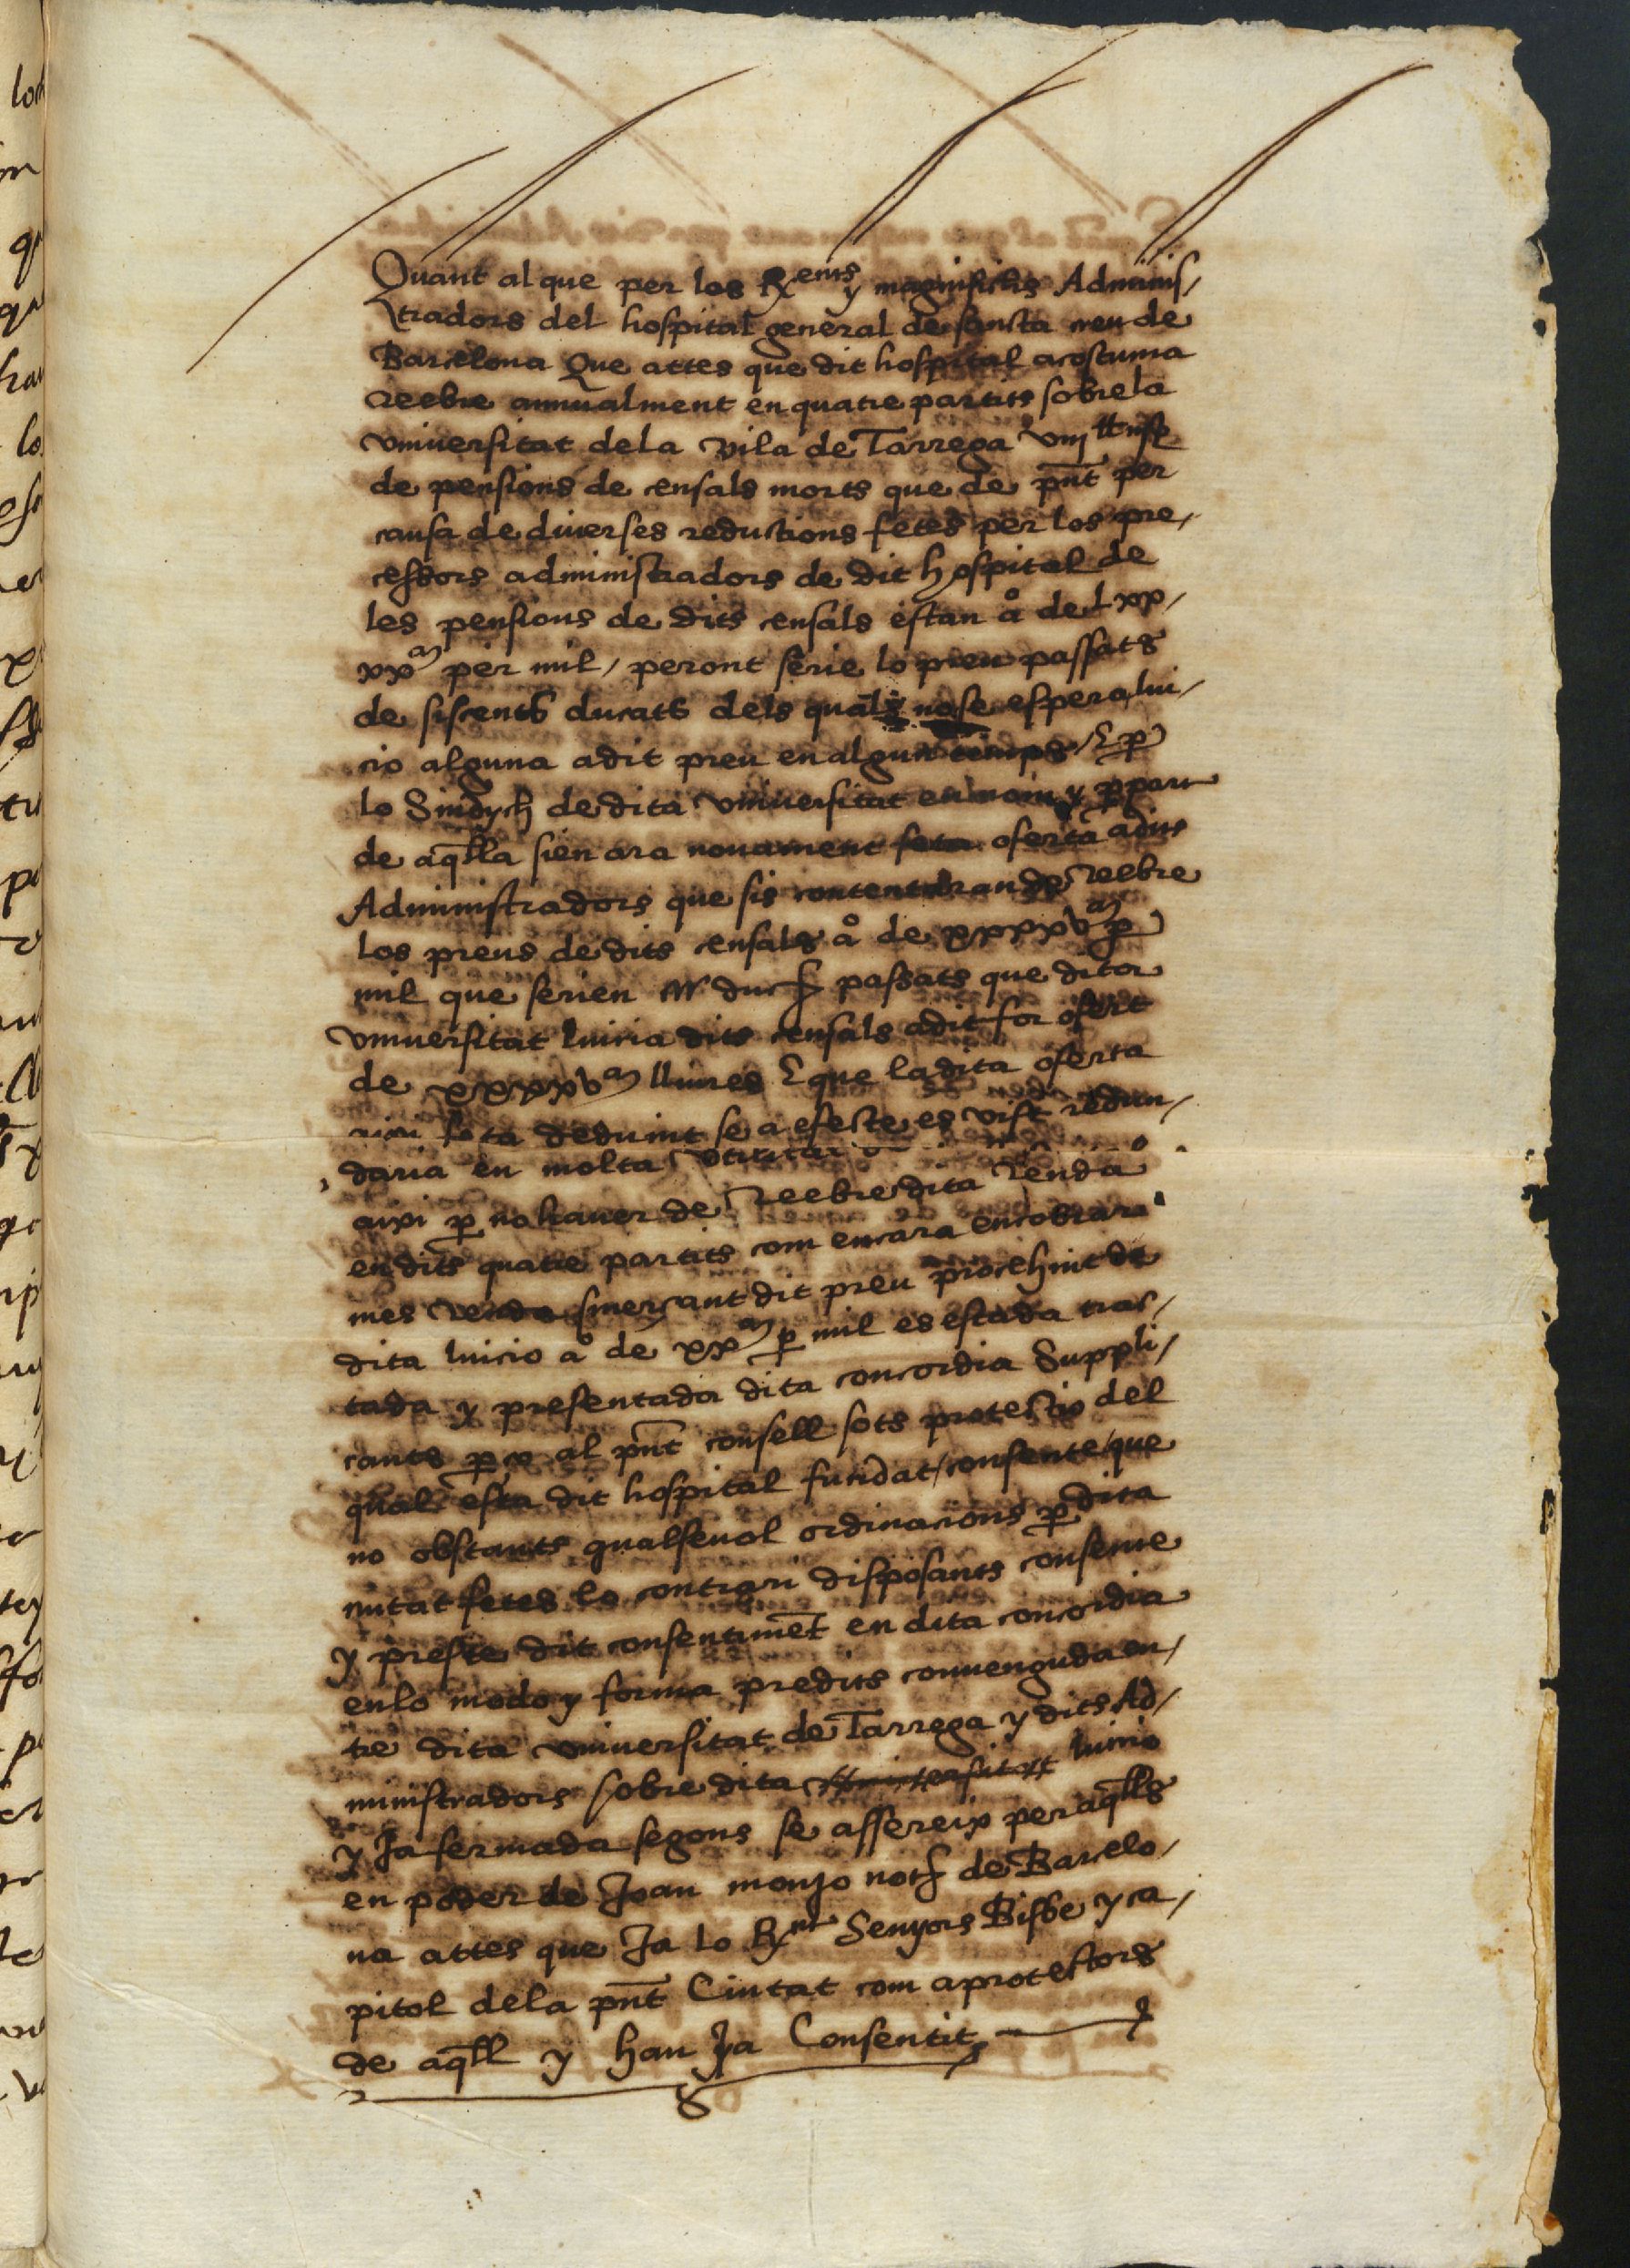 Quant al que per los Rx^ents y magnifichs Adminis/
tradors del hospital general de sancta creu de
Barcelona Que attes que dit hospital acostuma
reebre annualment en quatre partits sobre la
vniuersitat de la vila de Tarrega
de pensions de censals morts que de pnt per
causa de diuerses reductions fetes per los pre/
cessors administradors de dit hospital de
les pensions de dits censals estan a° de Lxx/
xx^m per mil / peront serie lo preu passats
de siscents ducats dels quals no se espera lui/
cio alguna a dit preu en algun temps / E p
lo Sindych de dita vniuersitat en nom y p part
de aqlla sien ara nouament feta oferta a dits
Administradors que sis contentaran de reebre
los preus de dits censals a° de xxxxv^m p
mil que serien duc passats que dita
vniuersitat luiria dits censals a dit for ofert
de xxxxv^m lliures E que la dita oferta
feta deduint se a efecte es vist redun/
daria en molta vtilitat
aixi p no hauer de reebre dita renda
en dits quatre partits com encara en cobrar
mes renda smerçant dit preu procehint de
dita luicio a° de xx^m p mil es estada trac/
tada y presentada dita concordia Suppli/
cants p ço al pnt consell sots protectio del
qual esta dit hospital fundat / consente que
no obstants qualseuol ordinacions p dita
ciutat fetes lo contrari disposants consente
y preste dit consentimet en dita concordia
en lo modo y forma predits conuenguda en/
tre dita vniuersitat de Tarrega y dits Ad/
ministradors sobre dita vniuersitat luicio
y Ja fermada segons se assereix per aqlls
en poder de Joan monjo not de Barcelo/
na attes que Ja lo Rx^nt Senyors Bisbe y ca/
pitol de la pnt Ciutat com a protectors
de aqll y han Ja Consentit